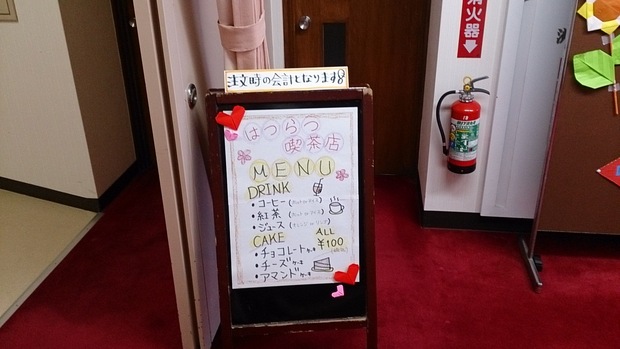 注文時の会計となります
はつらつ
喫茶店
MENU
DRINK
・コーヒー (Hot or アイス)
・紅茶 (Hot or アイス)
・ジュース
CAKE
ALL
¥100
・チョコレートケーキ
・チーズケーキ
・アマンドケーキ
消火器